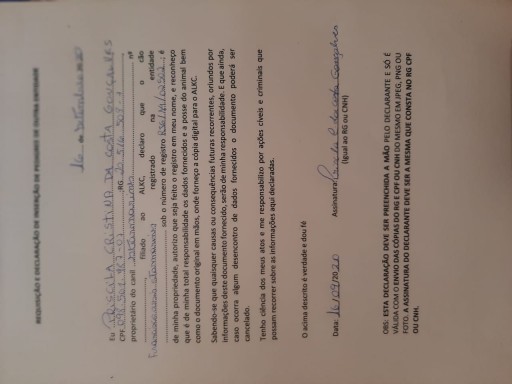 REQUISIÇÃO E DECLARAÇÃO DE INSERÇÃO DE PEDIGREE DE OUTRA ENTIDADE
16 de Setembro de 20
Eu PRISCILA CRISTINA DA COSTA GONÇALVES
CPF RG
proprietário do canil nº
filiado ao ALKC, declaro que o cão
registrado na entidade
sob o número de registro é
de minha propriedade, autorizo que seja feito o registro em meu nome, e reconheço
que é de minha total responsabilidade os dados fornecidos e a posse do animal bem
como o documento original em mãos, onde forneço a cópia digital para o ALKC.
Sabendo-se que quaisquer causas ou consequências futuras recorrentes, oriundos por
informações deste documento fornecido, serão de minha responsabilidade. E que ainda,
caso ocorra algum desencontro de dados fornecidos o documento poderá ser
cancelado.
Tenho ciência dos meus atos e me responsabilizo por ações cíveis e criminais que
possam recorrer sobre as informações aqui declaradas.
O acima descrito é verdade e dou fé
Data: 16/09/2020 Assinatura: Priscila C da Costa Gonçalves
(Igual ao RG ou CNH)
OBS: ESTA DECLARAÇÃO DEVE SER PREENCHIDA A MÃO PELO DECLARANTE E SÓ É
VÁLIDA COM O ENVIO DAS CÓPIAS DO RG E CPF OU CNH DO MESMO EM JPEG, PNG OU
FOTO. A ASSINATURA DO DECLARANTE DEVE SER A MESMA QUE CONSTA NO RG CPF
OU CNH.